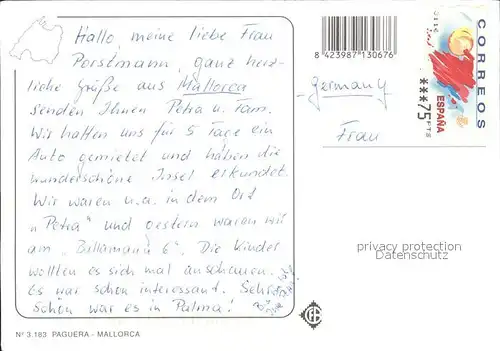 Hallo meine liebe Frau
Porstmann, ganz herz-
liche Grüße aus Mallorca
senden Ihnen Petra u. Fam.
Wir hatten uns für 5 Tage ein
Auto gemietet und haben die
wunderschöne Insel erkundet.
Wir waren u.a. in dem Ort
"Petra" und gestern waren wir
am "Ballermann 6". Die Kinder
wollten es sich mal anschauen.
Es war schon interessant. Sehr
schön war es in Palma!
Nº 3.183 PAGUERA - MALLORCA
8 423987 130676
Germany
Frau
CORREOS
ESPAÑA
***75 PTS
privacy protection
Datenschutz